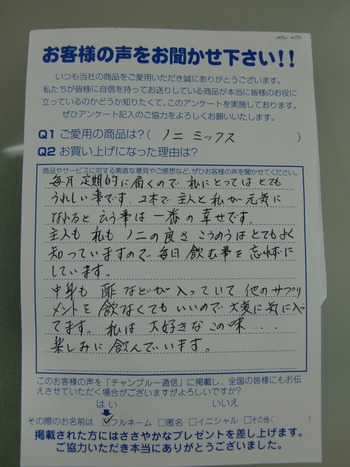 お客様の声をお聞かせ下さい!!
いつも当社の商品をご愛用いただき誠にありがとうございます。
私たちが皆様に自信を持ってお送りしている商品が本当に皆様のお役に
立っているのかどうか知りたくて、このアンケートを実施しております。
ぜひアンケート記入のご協力をよろしくお願いいたします。
Q1 ご愛用の商品は?( ノニ ミックス )
Q2 お買い上げになった理由は?
商品やサービスに対する素直な意見やご感想など、ぜひお客様の声を聞かせてください。
毎月定期的に届くので私にとってはとても
うれしい事です。2本で主人と私が元気に
なれると云う事は一番の幸せです。
主人も私もノニの良さこうのうはとてもよく
知っていますので毎日飲む事を忘れずに
しています。
中身も酢などが入っていて他のサプリ
メントを飲なくてもいいので大変に気に入っ
てます。私は大好きなこの味....
楽しみに飲んでいます。
このお客様の声を「チャンプルー通信」に掲載し、全国の皆様にもお伝
えさせていただく場合がございますがよろしいですか?
はい いいえ
その際のお名前は ☑フルネーム □匿名 □イニシャル □その他( )
掲載された方にはささやかなプレゼントを差し上げます。
ご協力いただき本当にありがとうございました。